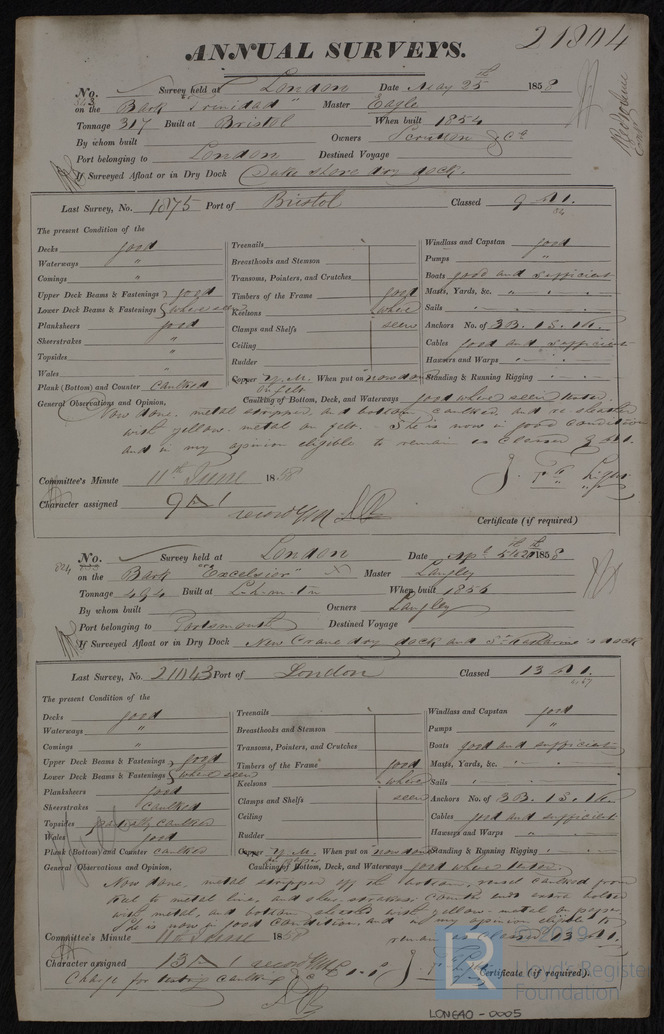 ANNUAL SURVEYS.
21804
No. 343 Survey held at London Date May 25th 1858
on the Bark "Trinidad" Master Eagle
Tonnage 317 Built at Bristol When built 1854
By whom built Owners Scrutton & Co
Port belonging to London Destined Voyage
If Surveyed Afloat or in Dry Dock Duke shore dry dock.
Last Survey, No. 1875 Port of Bristol Classed 9 A 1.
The present Condition of the
Decks good
Waterways "
Comings "
Upper Deck Beams & Fastenings good
Lower Deck Beams & Fastenings where seen
Planksheers good
Sheerstrakes "
Topsides "
Wales "
Plank (Bottom) and Counter Caulked
Treenails
Breasthooks and Stemson
Transoms, Pointers, and Crutches
Timbers of the Frame good
Keelsons where
Clamps and Shelfs seen
Ceiling
Rudder
Copper Y.M. When put on now done
on felt
Windlass and Capstan good
Pumps "
Boats good and sufficient
Masts, Yards, &c. " " "
Sails
Anchors No. of 3B. 1S. 1K.
Cables good and sufficient
Hawsers and Warps
Standing & Running Rigging
General Observations and Opinion, Caulking of Bottom, Deck, and Waterways good where seen
Now done, metal stripped and bottom caulked, and re sheathed
with yellow metal on felt. - She is now in good condition
and in my opinion eligible to remain as classed 9 A 1.
Committee's Minute 11th June 1858
Character assigned 9 A 1
Certificate (if required)
No. 824 Survey held at London Date Apl 5th 1858
on the Bark "Excelsior" Master Langley
Tonnage 494 Built at When built 1856
By whom built Owners Langley
Port belonging to Portsmouth Destined Voyage
If Surveyed Afloat or in Dry Dock New Crane dry dock and St Katharine's dock
Last Survey, No. 21043 Port of London Classed 13 A 1.
The present Condition of the
Decks good
Waterways "
Comings "
Upper Deck Beams & Fastenings good
Lower Deck Beams & Fastenings where seen
Planksheers good
Sheerstrakes Caulked
Topsides partially caulked
Wales good
Plank (Bottom) and Counter caulked
Treenails
Breasthooks and Stemson
Transoms, Pointers, and Crutches
Timbers of the Frame good
Keelsons where
Clamps and Shelfs seen
Ceiling
Rudder
Copper Y.M. When put on now done
Windlass and Capstan good
Pumps "
Boats good and sufficient
Masts, Yards, &c.
Sails
Anchors No. of 3B. 1S. 1K.
Cables good and sufficient
Hawsers and Warps
Standing & Running Rigging
General Observations and Opinion, Caulking of Bottom, Deck, and Waterways good where
Now done, metal stripped off the bottom, vessel caulked from
to metal line, and
with metal, and bottom sheathed with yellow metal on paper.
She is now in good condition, and in my opinion eligible to
remain as Classed 13 A 1.
Committee's Minute 11th June 1858
Character assigned 13 A 1
Charge for testing caulking &c
Certificate (if required).
© 2019
Lloyd's Register
Foundation
LON640-0005